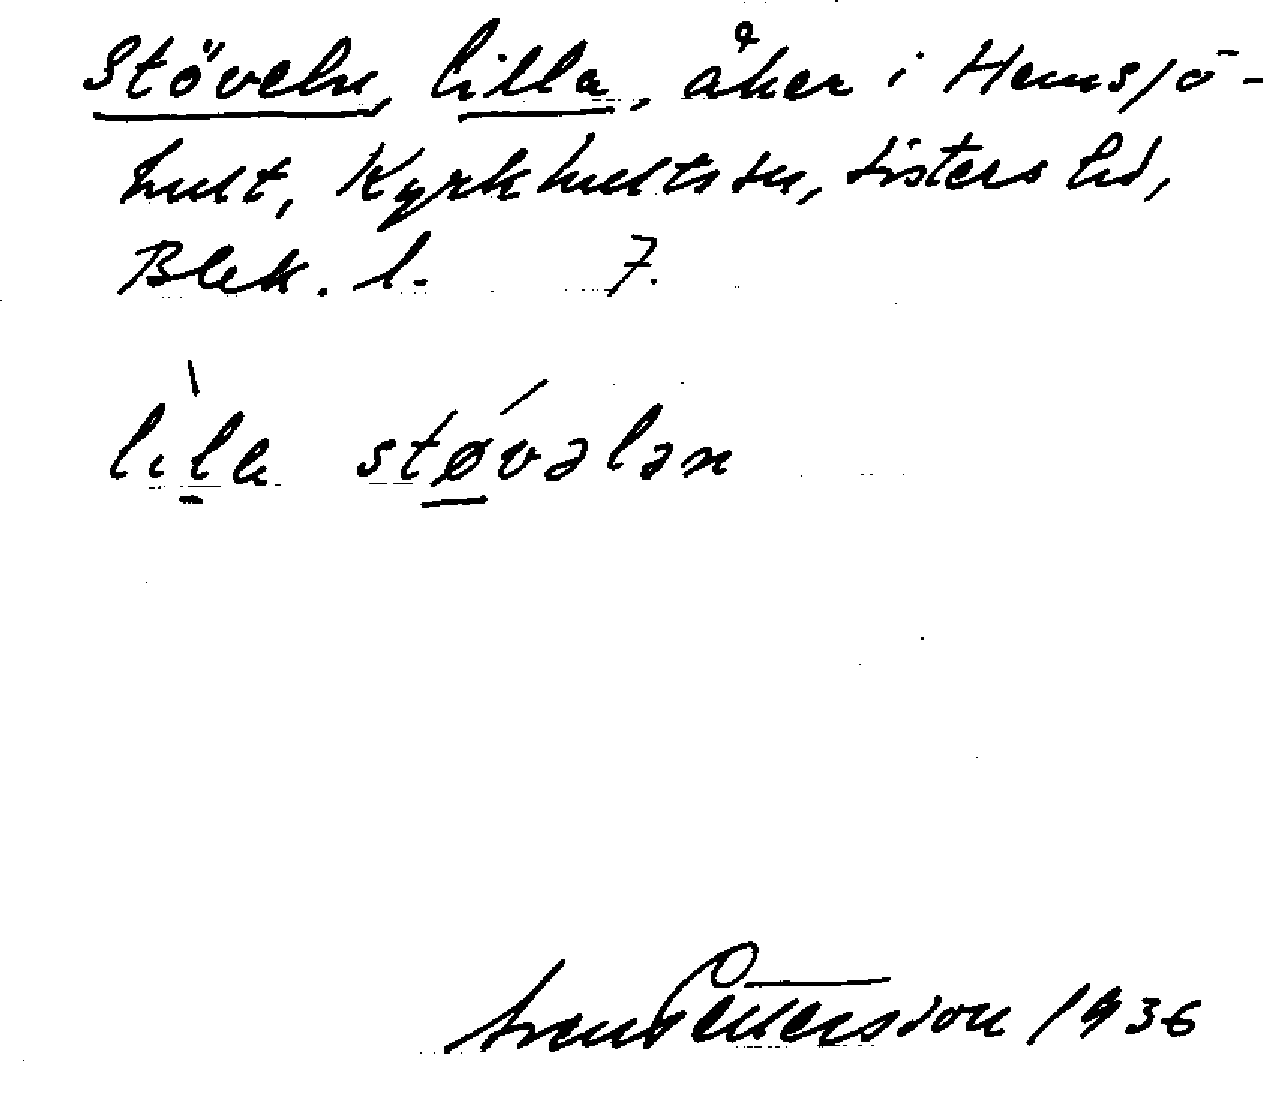 Stöveln, lilla, åker i Hemsjö-
hult, Kyrkhults sn, Listers hd,
Blek. l. 7.
lìla støvələn
Sven Pettersson 1936